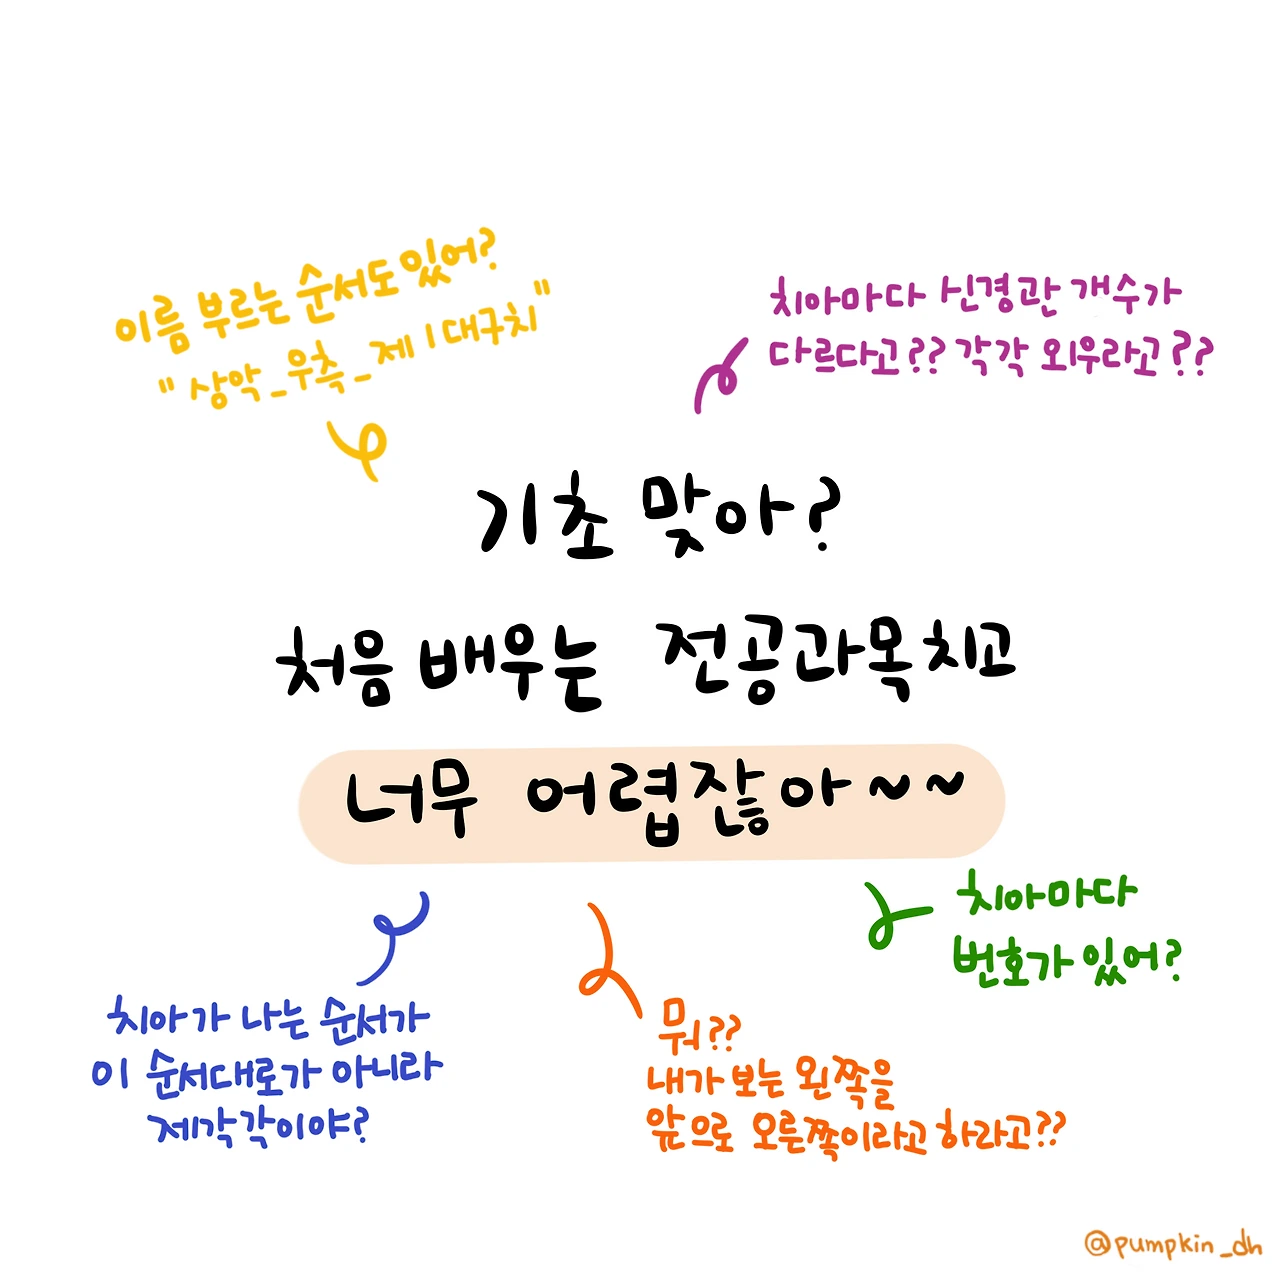 이름 부르는 순서도 있어?
"상악_우측_제1대구치"
치아마다 신경관 개수가
다르다고?? 각각 외우라고??
기초 맞아?
처음 배우는 전공과목치고
너무 어렵잖아~~
치아가 나는 순서가
이 순서대로가 아니라
제각각이야?
뭐??
내가 보는 왼쪽을
앞으로 오른쪽이라고 하라고??
치아마다
번호가 있어?
@pumpkin_dh